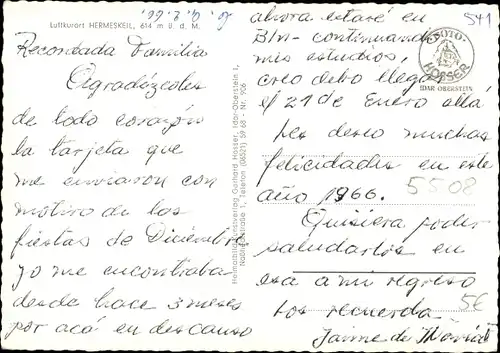 Luftkurort HERMESKEIL, 614 m ü. d. M.
Recordada Familia
Agradózcoles
de todo corazón
la tarjeta que
me enviaron con
motivo de las
fiestas de Diciembre
yo me encontraba
desde hace 3 meses
por acá en descanso
Heimatbild-Kunstverlag Gerhard Hosser, Idar-Oberstein 1,
Telefon (06521) 59 68 - Nr. 906
FOTO-
HOSSER
IDAR OBERSTEIN
541
ahora estaré en
Bln- continuando
mis estudios,
creo debo llegar
el 21 de Enero allá
les deseo muchas
felicidades en este
año 1966.
5508
Quisiera poder
saludarlos en
esa a mi regreso
los recuerda
5€
Jaime de